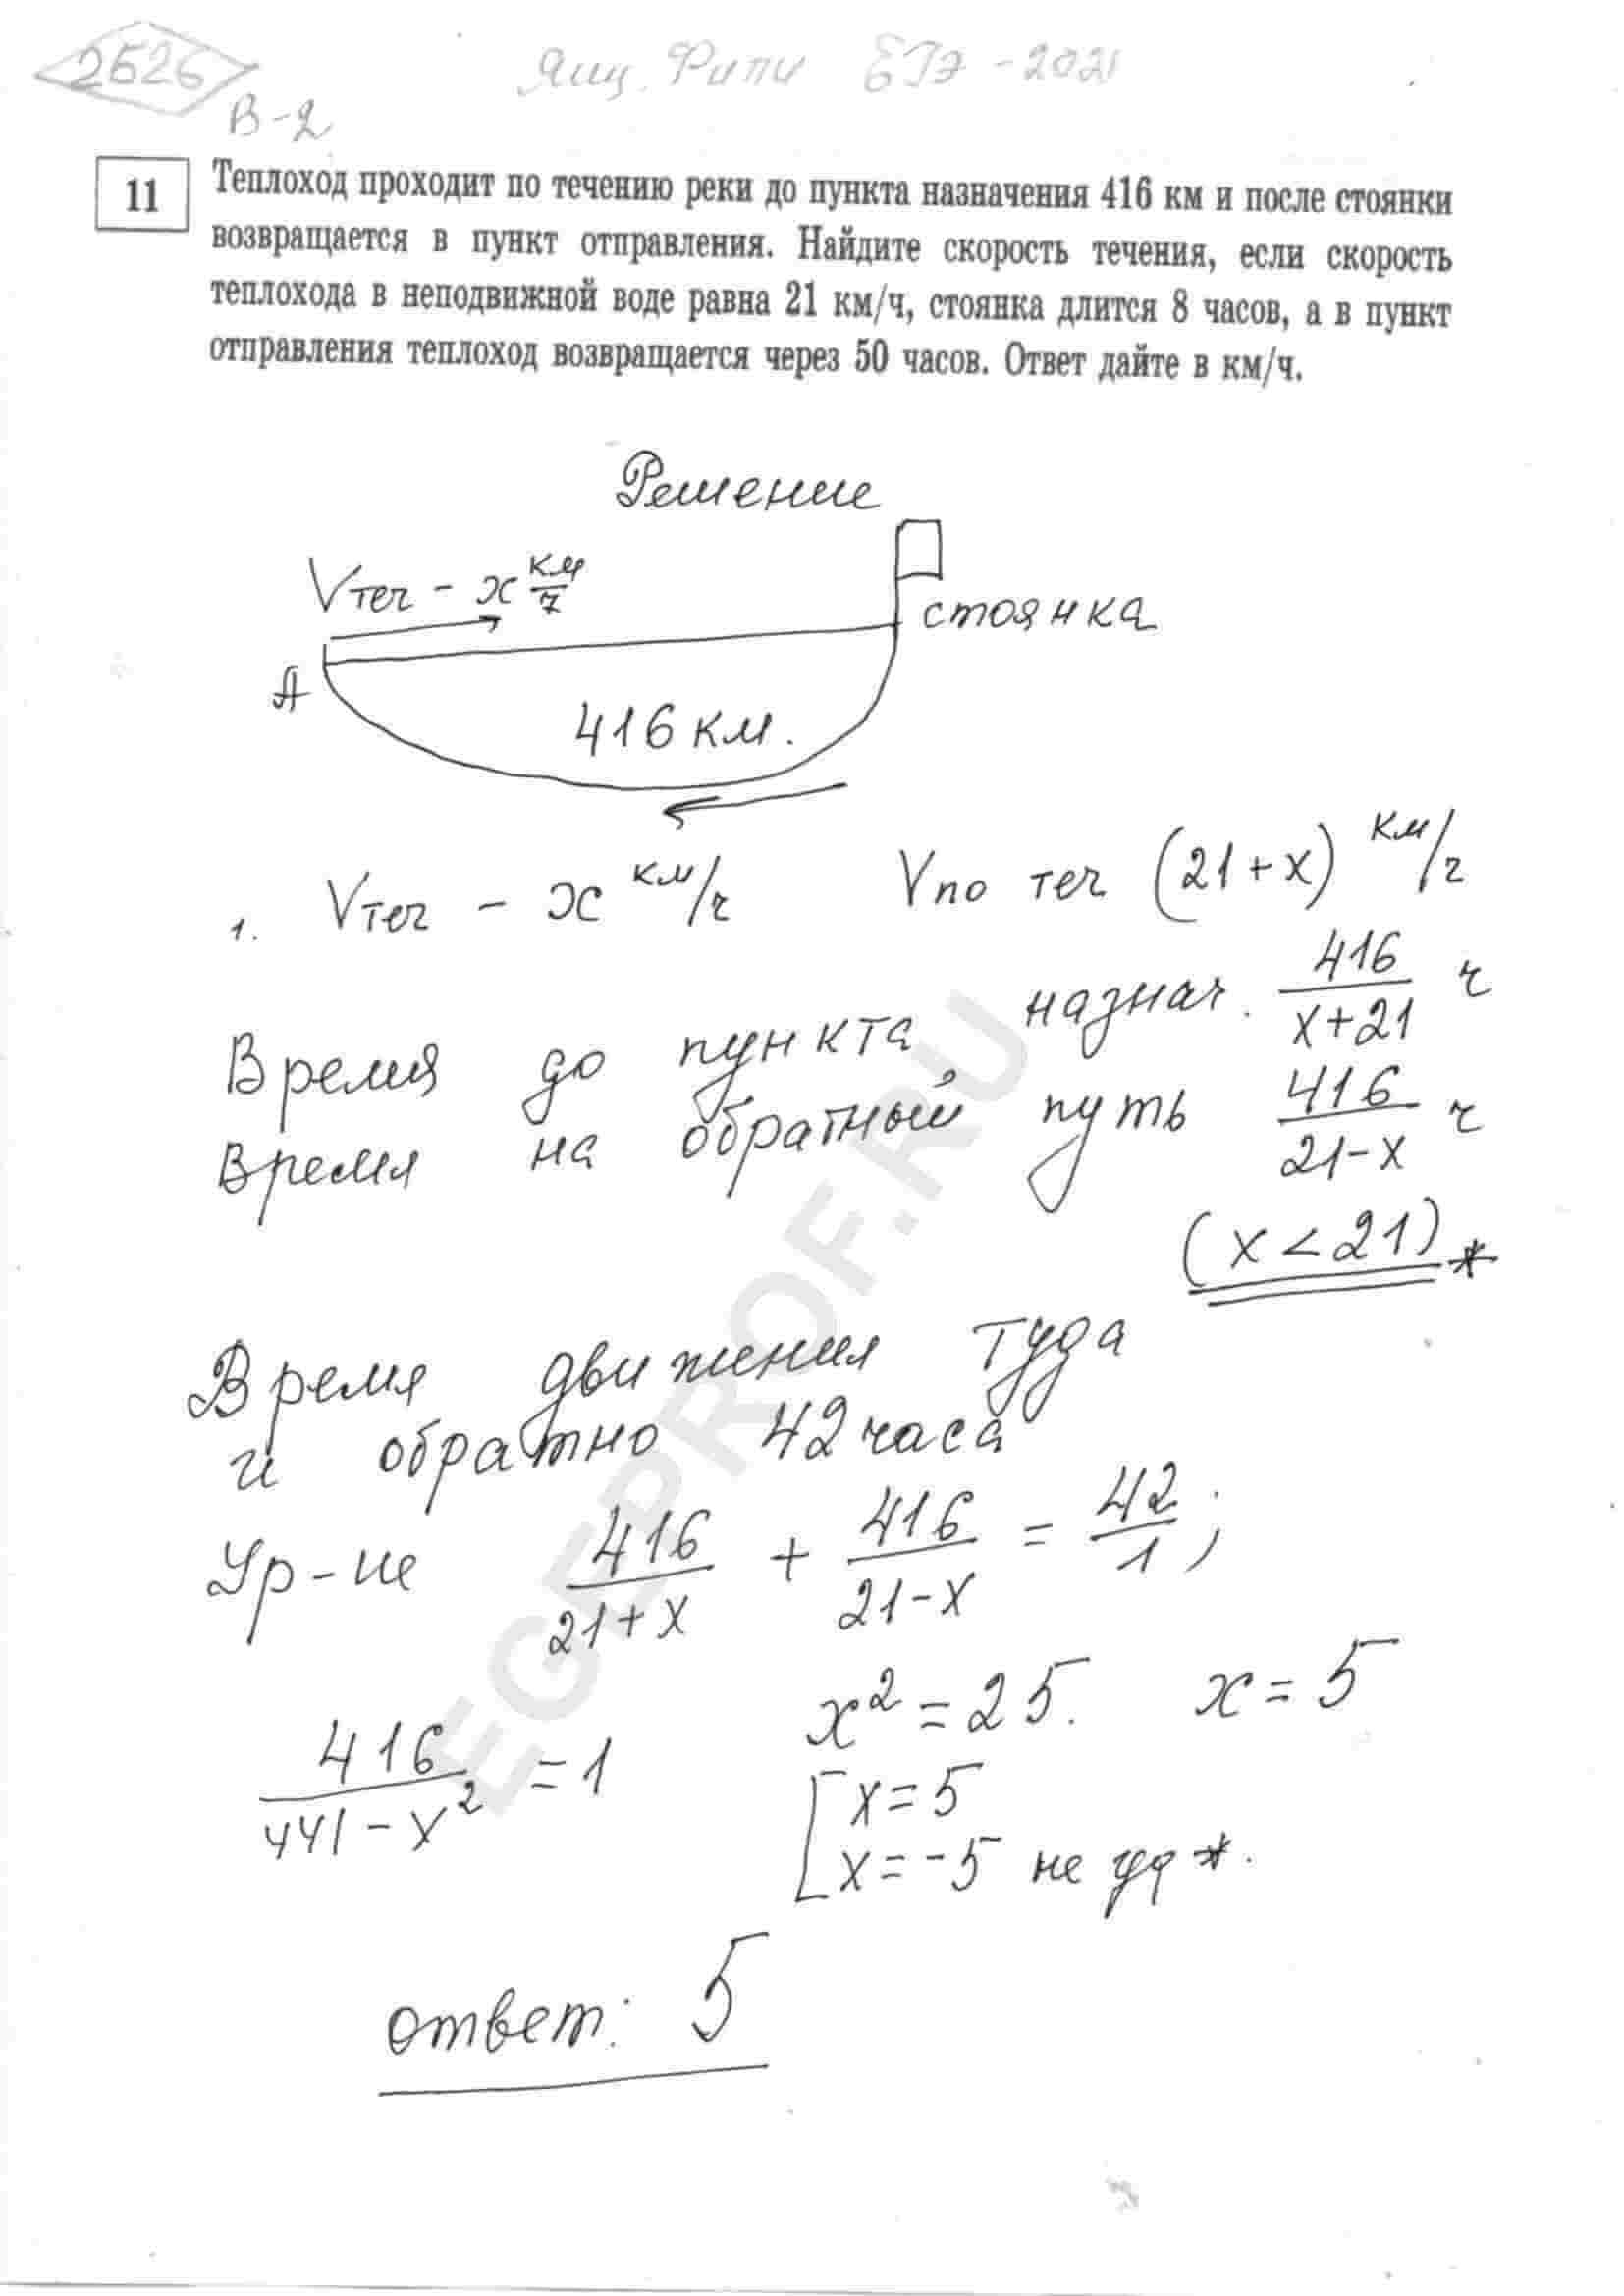 2626
Ящ. Фипи ЕГЭ - 2021
В-2
11
Теплоход проходит по течению реки до пункта назначения 416 км и после стоянки
возвращается в пункт отправления. Найдите скорость течения, если скорость
теплохода в неподвижной воде равна 21 км/ч, стоянка длится 8 часов, а в пункт
отправления теплоход возвращается через 50 часов. Ответ дайте в км/ч.
Решение
Vтеч - x км/ч
стоянка
А
416 км.
1. Vтеч - x км/ч Vпо теч (21+x) км/ч
Время до пункта назнач. 416/(x+21) ч
Время на обратный путь 416/(21-x) ч
(x < 21) *
Время движения туда
и обратно 42 часа
Ур-ие 416/(21+x) + 416/(21-x) = 42/1 ;
x² = 25. x = 5
416/(441-x²) = 1
[ x = 5
x = -5 не уд *.
ответ: 5
EGEPROF.RU